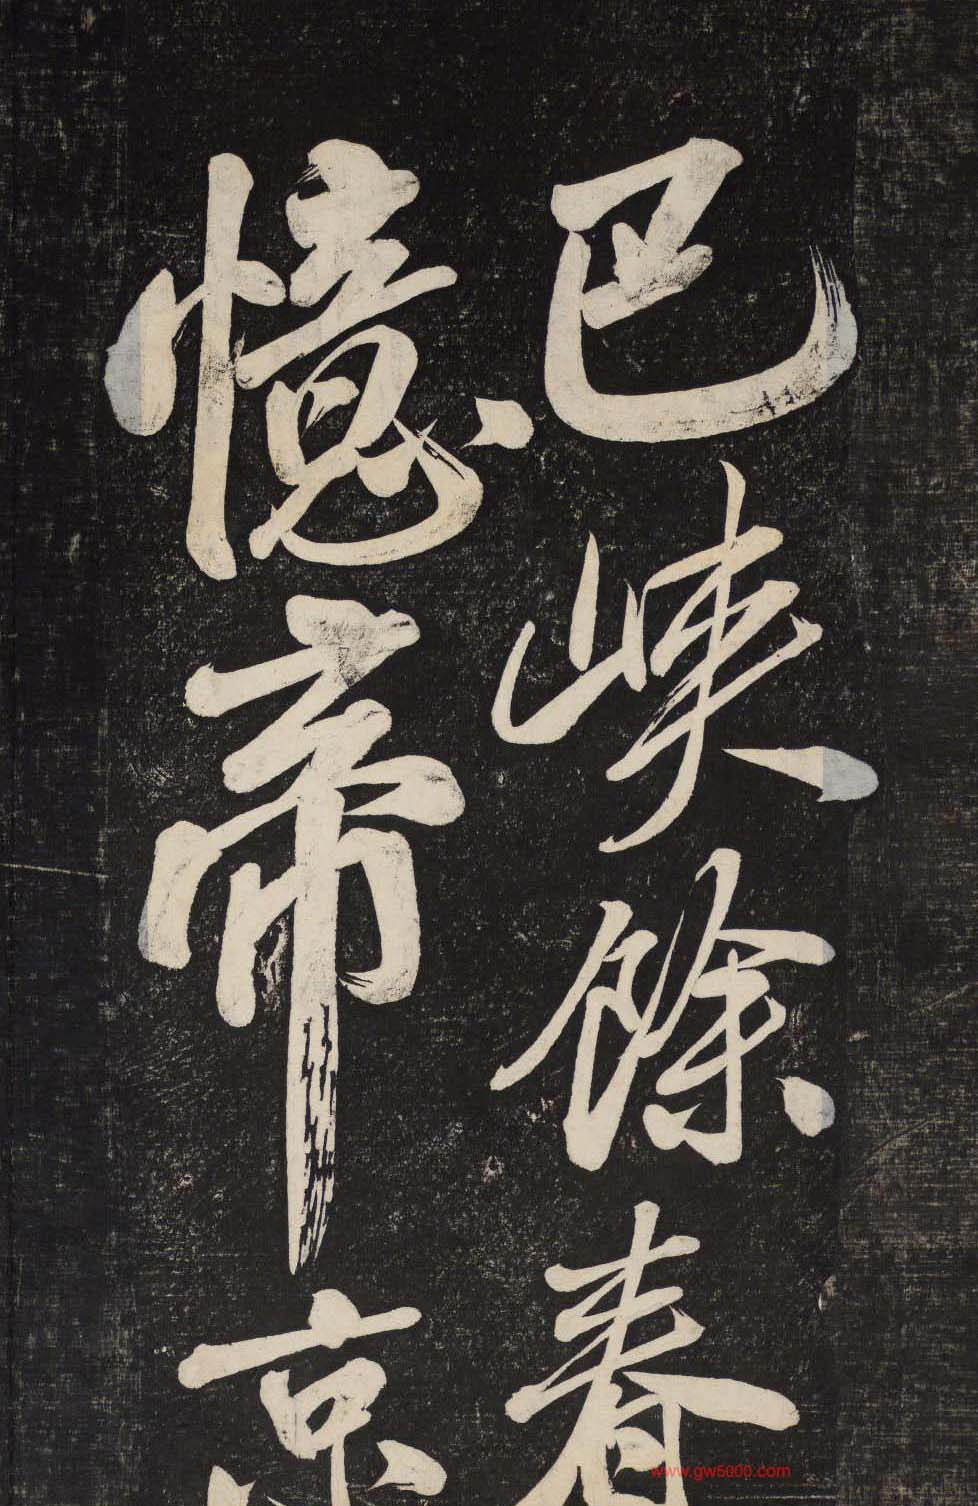 巴峽餘春
憶帝京
www.gw5000.com